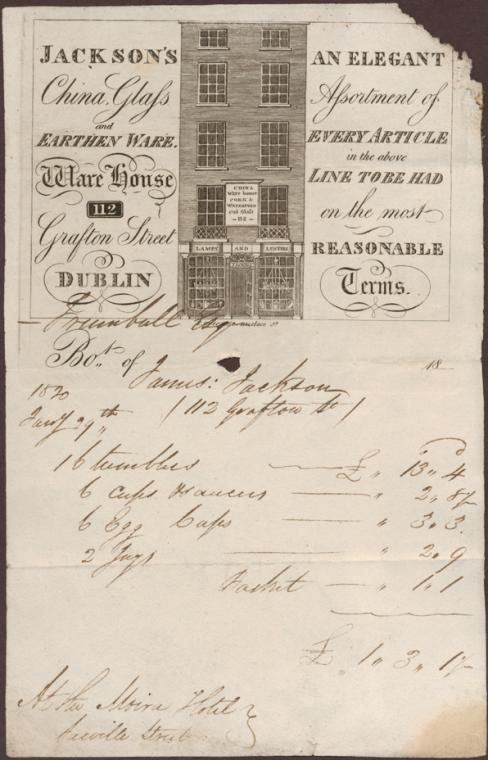 JACKSON'S
China, Glaſs
and
EARTHEN WARE.
Ware House
112
Grafton Street
DUBLIN
CHINA
Ware house
CORK &
WATERFORD
Cut Glaſs
112
LAMPS AND LUSTRES
AN ELEGANT
Aſsortment of
EVERY ARTICLE
in the above
LINE TO BE HAD
on the most
REASONABLE
Terms.
— Trumball Esq
Bot. of James: Jackson 18
1820 (112 Grafton St)
Jany 29th
16 tumblers — £ " 13 " 4
6 cups & saucers — " 2 " 8½
6 Egg Cups — " 3 " 3
2 Jugs — " 2 " 9
— " 1 " 1
£ 1 " 3 " 1½
At the Moira Hotel
Street